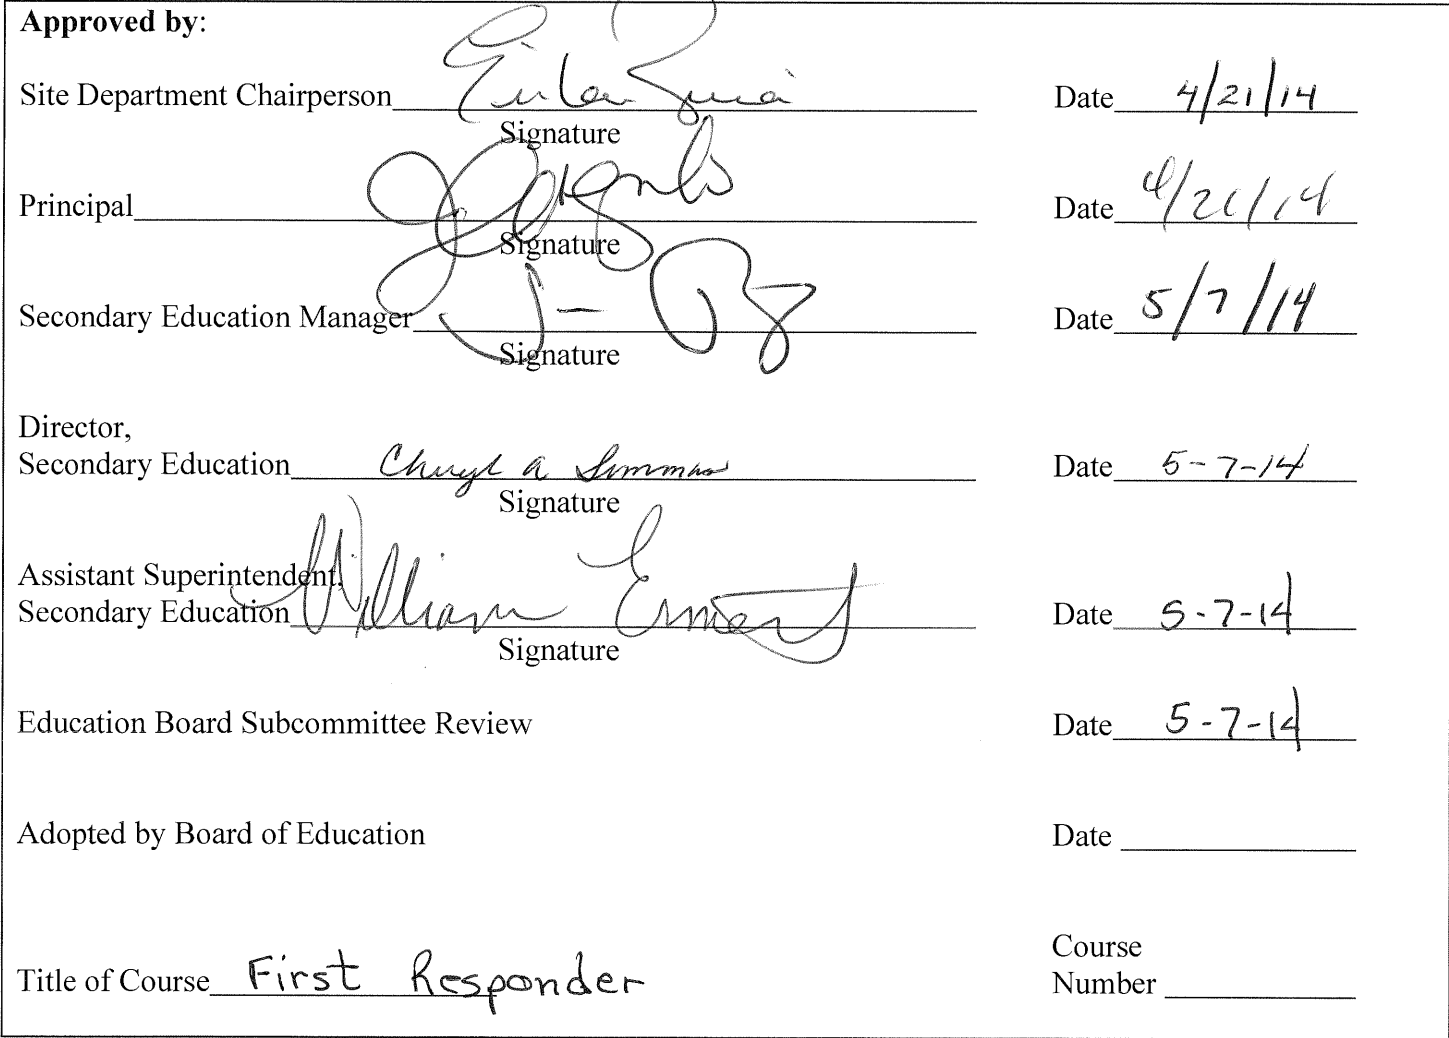 Approved by:
Site Department Chairperson Date 4/21/14
Signature
Principal Date 4/21/14
Signature
Secondary Education Manager Date 5/7/14
Signature
Director,
Secondary Education Cheryl A Simmons Date 5-7-14
Signature
Assistant Superintendent,
Secondary Education William Ermert Date 5-7-14
Signature
Education Board Subcommittee Review Date 5-7-14
Adopted by Board of Education Date
Course
Title of Course First Responder Number